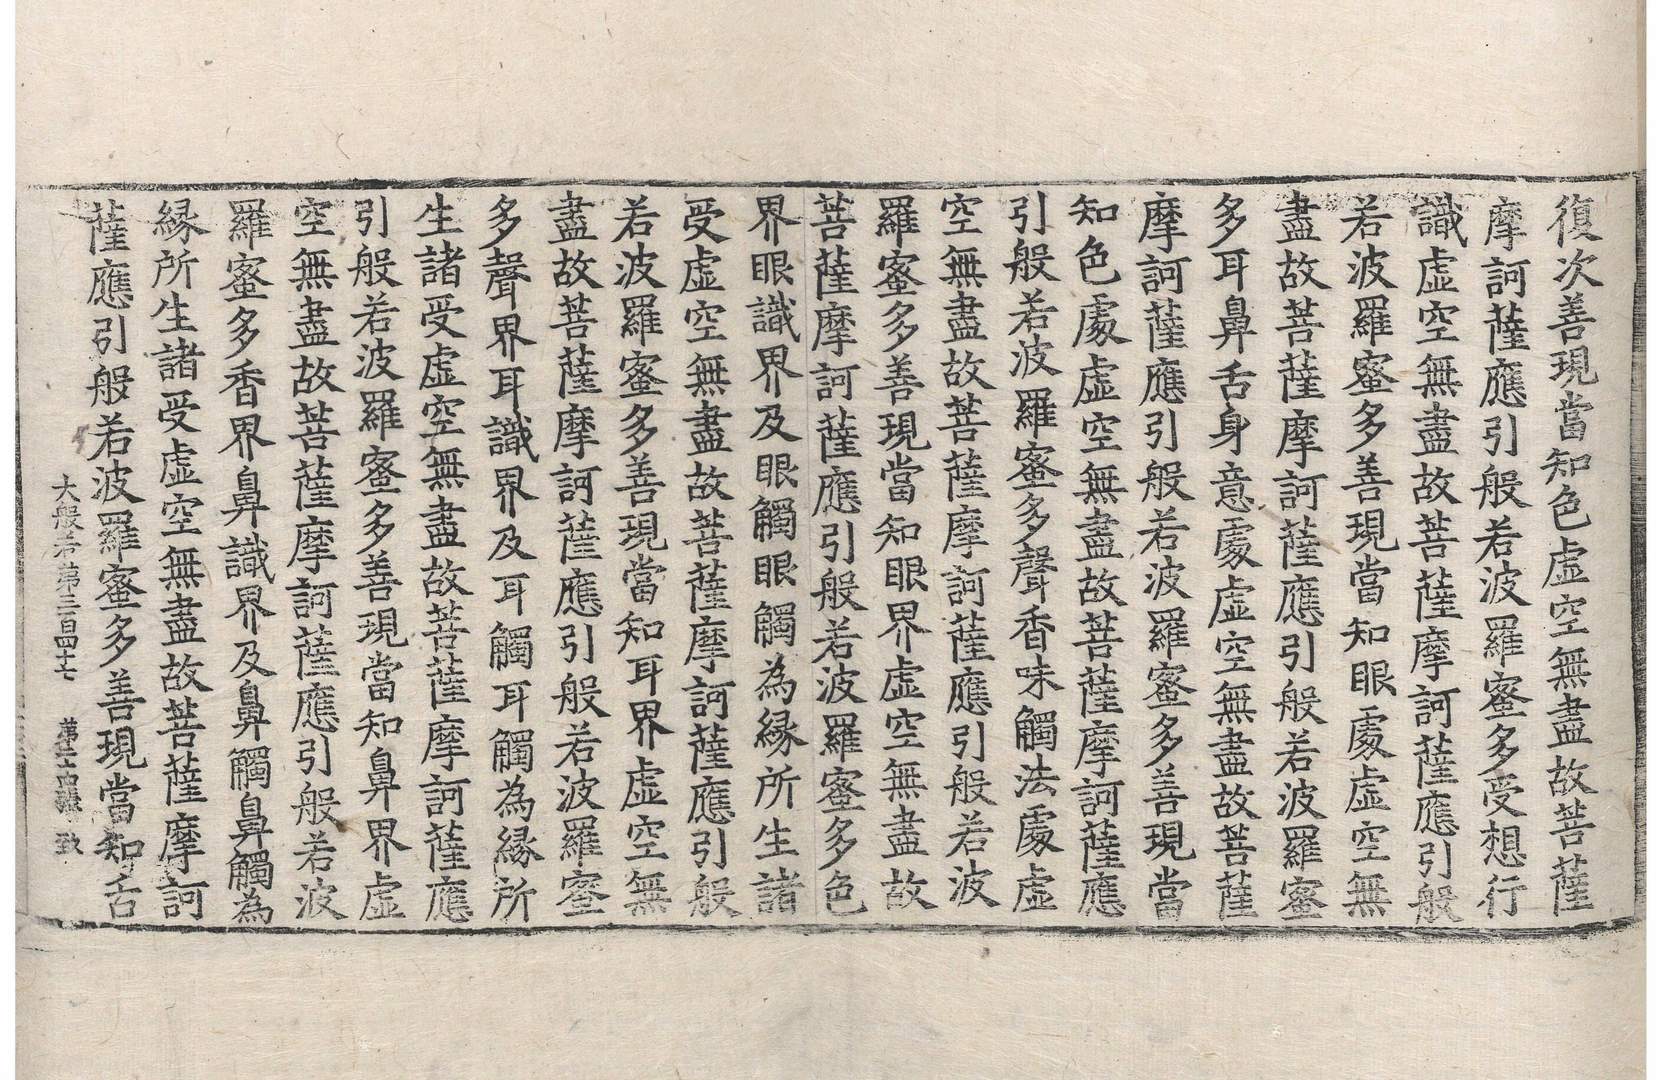 復次善現當知色虛空無盡故菩薩
摩訶薩應引般若波羅蜜多受想行
識虛空無盡故菩薩摩訶薩應引般
若波羅蜜多善現當知眼處虛空無
盡故菩薩摩訶薩應引般若波羅蜜
多耳鼻舌身意處虛空無盡故菩薩
摩訶薩應引般若波羅蜜多善現當
知色處虛空無盡故菩薩摩訶薩應
引般若波羅蜜多聲香味觸法處虛
空無盡故菩薩摩訶薩應引般若波
羅蜜多善現當知眼界虛空無盡故
菩薩摩訶薩應引般若波羅蜜多色
界眼識界及眼觸眼觸為緣所生諸
受虛空無盡故菩薩摩訶薩應引般
若波羅蜜多善現當知耳界虛空無
盡故菩薩摩訶薩應引般若波羅蜜
多聲界耳識界及耳觸耳觸為緣所
生諸受虛空無盡故菩薩摩訶薩應
引般若波羅蜜多善現當知鼻界虛
空無盡故菩薩摩訶薩應引般若波
羅蜜多香界鼻識界及鼻觸鼻觸為
緣所生諸受虛空無盡故菩薩摩訶
薩應引般若波羅蜜多善現當知舌
大般若第三百四十七 致